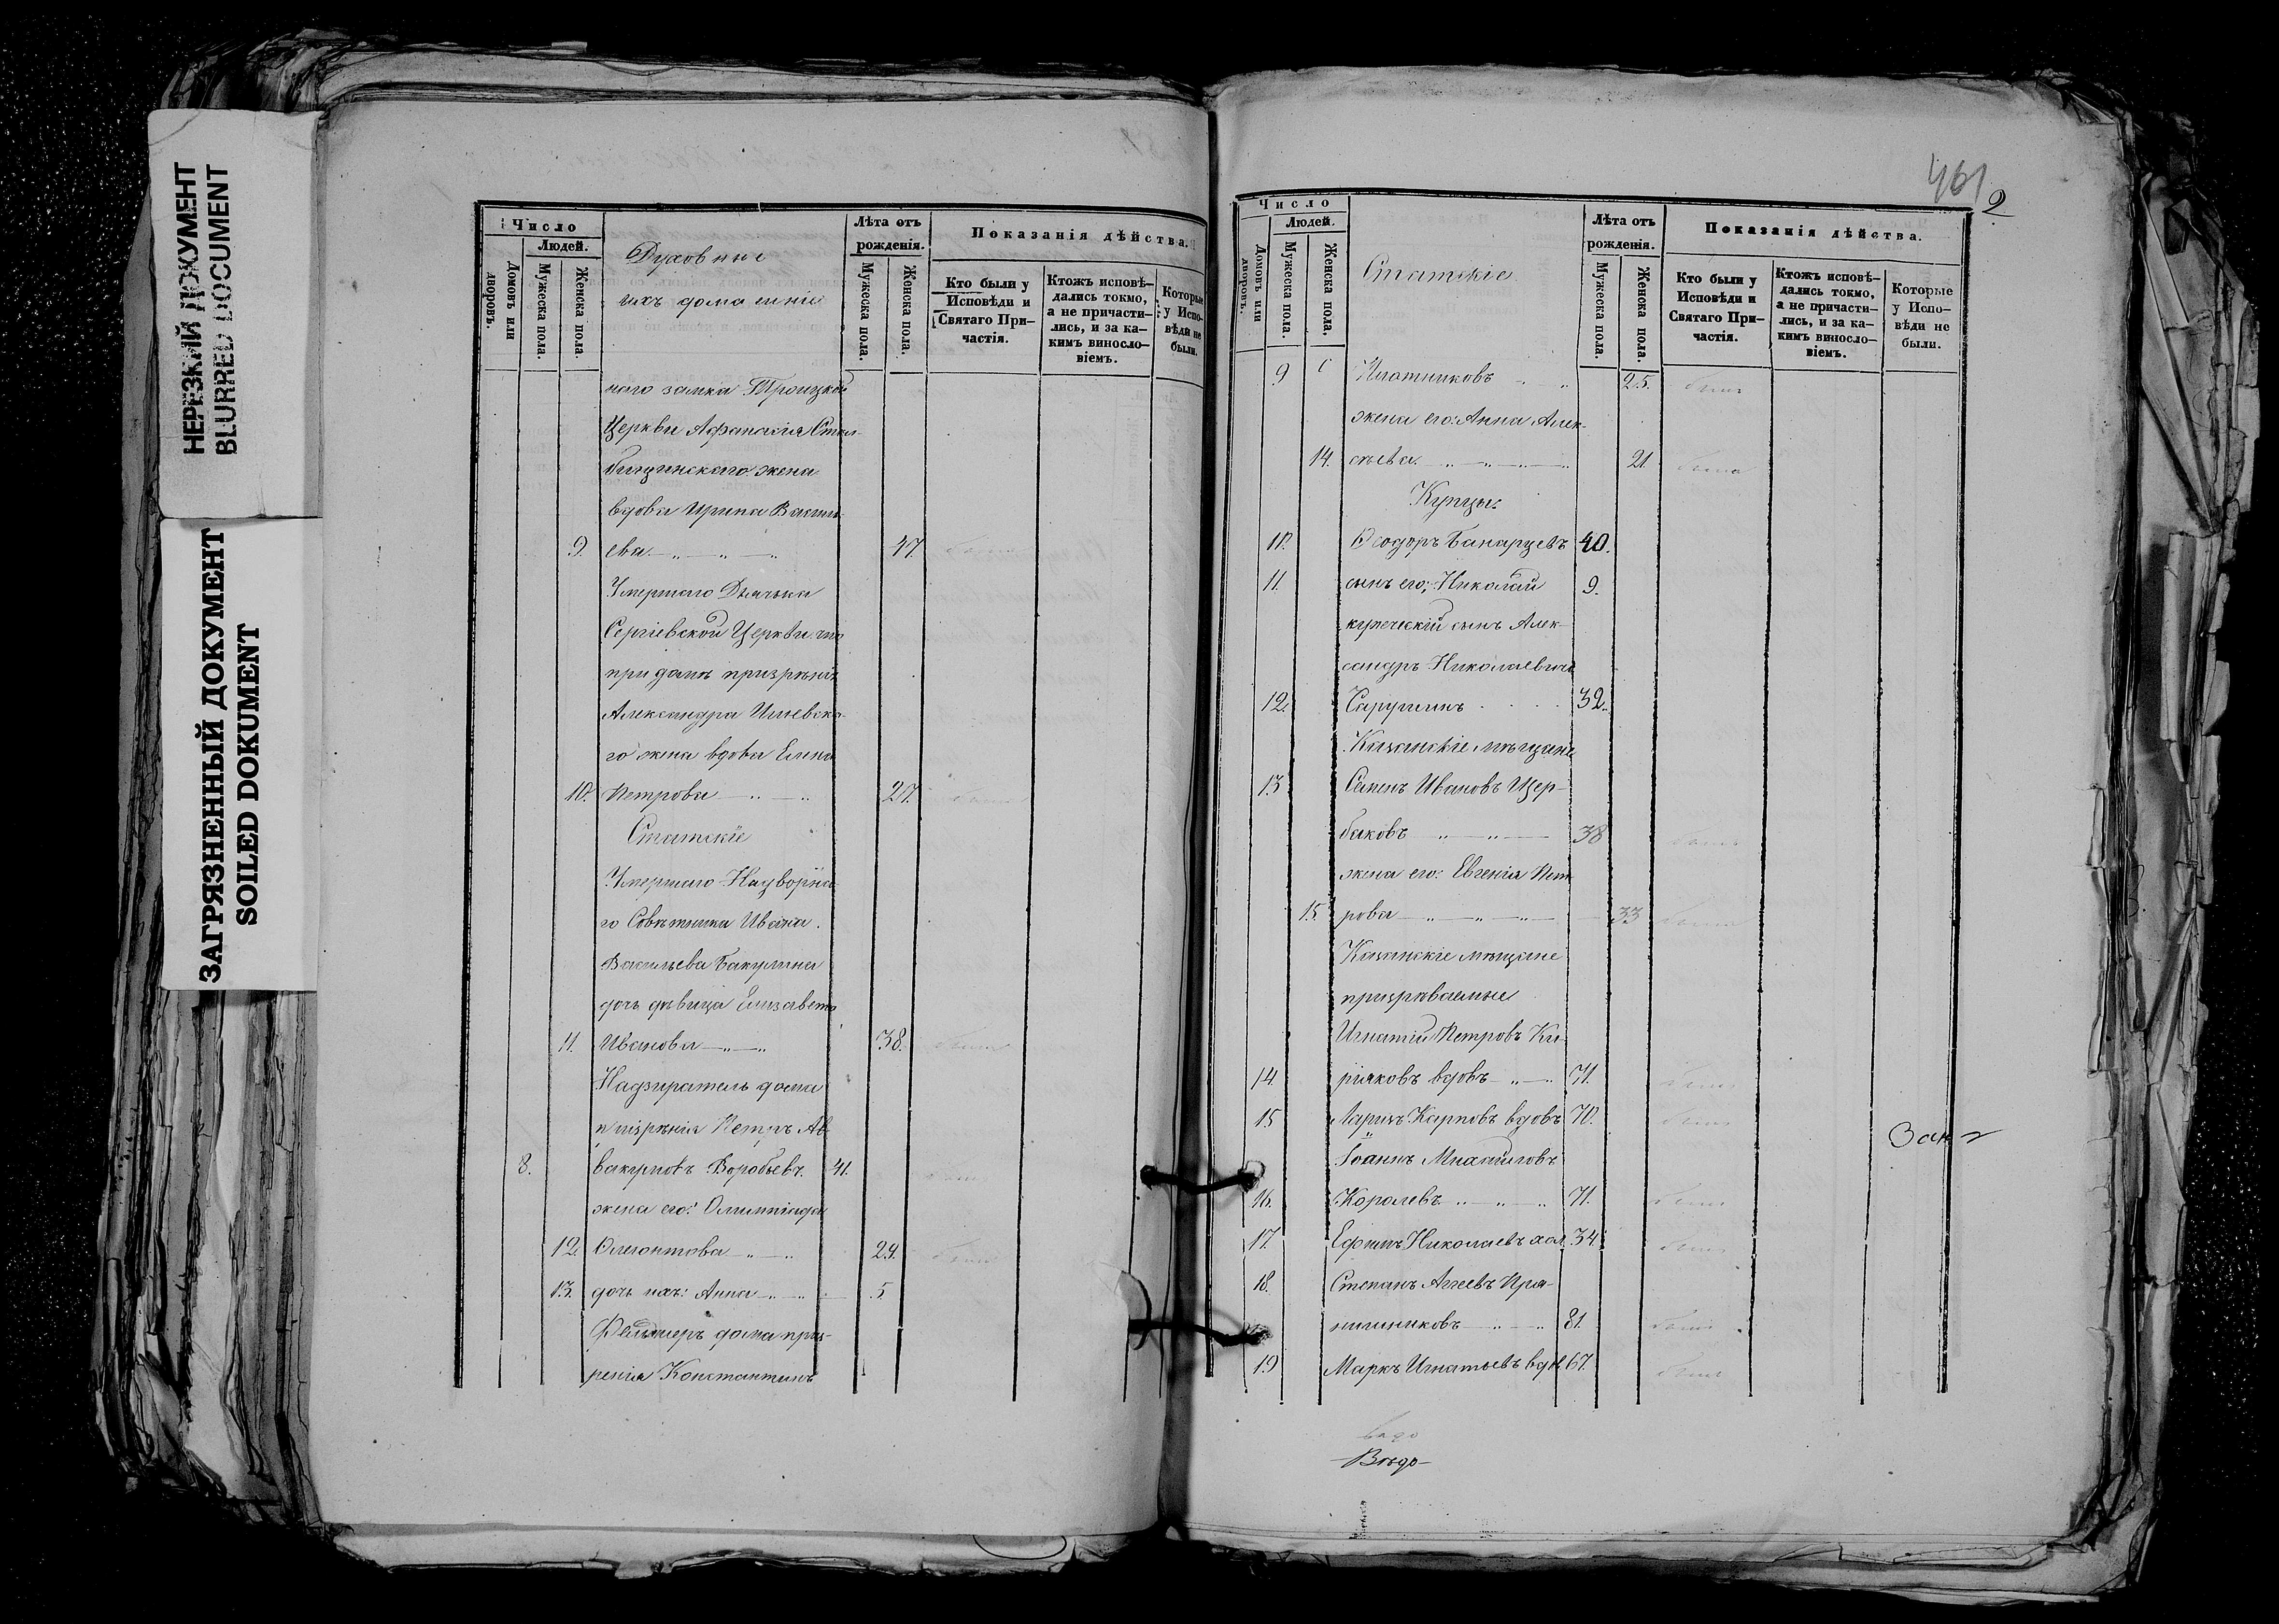 НЕРЕЗКИЙ ДОКУМЕНТ
BLURRED DOCUMENT
ЗАГРЯЗНЕННЫЙ ДОКУМЕНТ
SOILED DOKUMENT
Число
Людей.
Домовъ или дворовъ.
Мужеска пола.
Женска пола.
Духовные
ихъ домашніе
Лѣта отъ рожденія.
Мужеска пола.
Женска пола.
Показанія дѣйства.
Кто были у Исповѣди и Святаго Причастія.
Ктожъ исповѣдались токмо, а не причастились, и за какимъ винословіемъ.
Которые у Исповѣди не были.
наго замка Троицкой
Церкви Афанасія Стол-
бищенскаго жена
вдова Ирина Василь-
9. ева 47.
Умершаго Дьячка
Сергіевской Церкви что
при домѣ призрѣнія
Александра Илевска-
го жена вдова Елена
10. Петрова 27.
Статскіе
Умершаго Надворна-
го Совѣтника Ивана
Васильева Бакулина
дочь дѣвица Елизавета
11. Иванова 38.
Надзиратель дома
призрѣнія Петръ Ав-
8. вакумовъ Воробьевъ 41.
жена его: Олимпіада
12. Олегонтова 29.
13. дочь ихъ: Анна 5
Фельдшеръ дома приз-
ренія Константинъ
461
2
Число
Людей.
Домовъ или дворовъ.
Мужеска пола.
Женска пола.
Статскіе
Лѣта отъ рожденія.
Мужеска пола.
Женска пола.
Показанія дѣйства.
Кто были у Исповѣди и Святаго Причастія.
Ктожъ исповѣдались токмо, а не причастились, и за какимъ винословіемъ.
Которые у Исповѣди не были.
9 Плотниковъ 25. былъ
жена его: Анна Алек-
14. сѣева 21 была
Купцы:
10. Ѳеодоръ Банарцевъ 40.
11. сынъ его: Николай 9.
купеческій сынъ Алек-
сандръ Николаевичъ
12. Сапугинъ 32.
Казанскіе мѣщане
13 Семенъ Ивановъ Щер-
баковъ 38 былъ
жена его: Евгенія Пет-
15 рова 33 была
Казанскіе мѣщане
призрѣваемые
Игнатій Петровъ Ки-
14. ріяковъ вдовъ 71. былъ
15 Ларіонъ Карповъ вдовъ 70. былъ
Іоаннъ Михайловъ
16. Королевъ 71. былъ
17. Ефимъ Николаевъ хол. 34. былъ
18. Степанъ Агеевъ Пря-
нишниковъ 81. былъ
19 Маркъ Игнатьевъ вдов 67. былъ
Вѣдо-